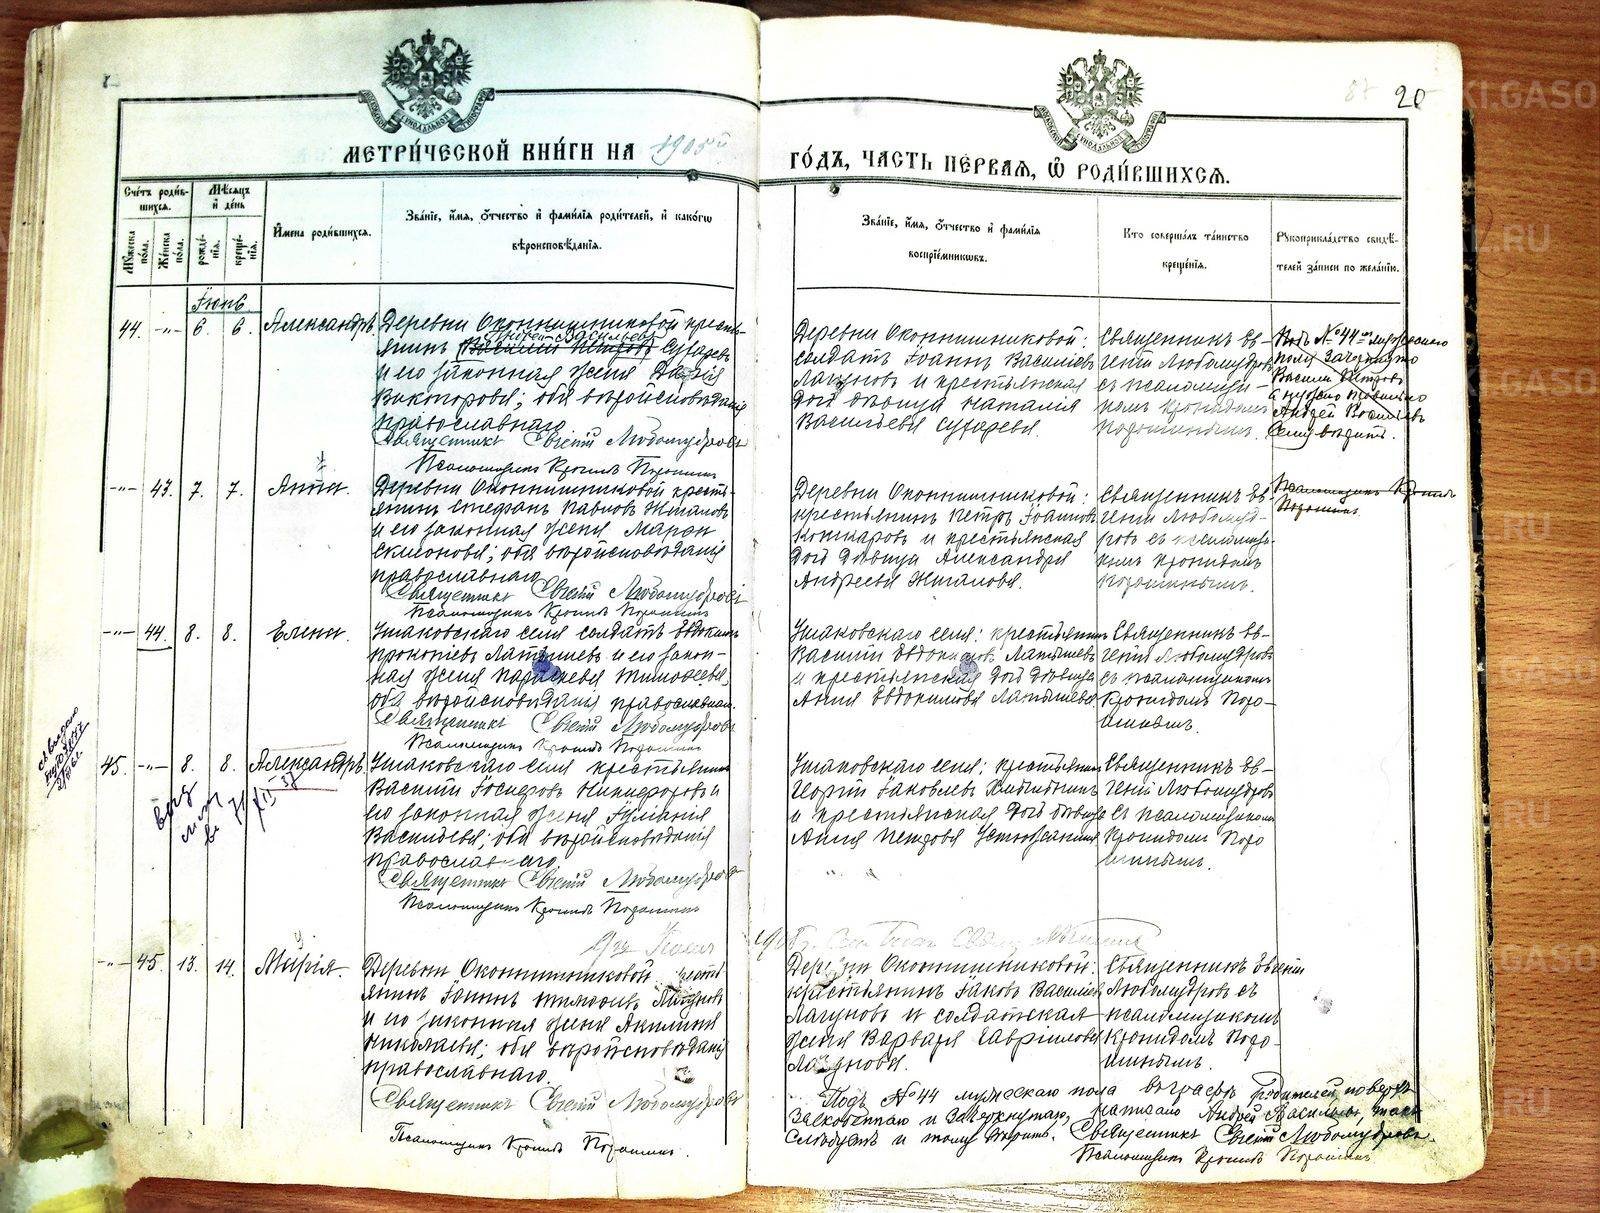 20
МЕТРИ́ЧЕСКОЙ КНИ́ГИ НА 1905й
ГО́ДЪ, ЧАСТЬ ПЕ́РВАЯ, Ѡ РОДИ́ВШИХСЯ.
Сче́тъ роди́в-
шихся.
Мѣ́сяцъ
и де́нь
Му́жеска
по́ла.
Же́нска
по́ла.
рожде́-
нія.
креще́-
нія.
И́мена роди́вшихся.
Зва́ніе, и́мя, о́тчество и фами́лія роди́телей, и како́гѡ
вѣроисповѣ́данія.
Зва́ніе, и́мя, о́тчество и фами́лія
воспріе́мникѡвъ.
Кто соверша́лъ та́инство
креще́нія.
Рукоприкла́дство свидѣ́-
телей за́писи по жела́нію.
Іюнь
44. -"- 6. 6. Александръ.
Деревни Оконнишниковой кресть-
янинъ Андрей Васильевъ
Василій Петровъ Сугаревъ
и его законная жена Дарія
Викторова; оба вѣроисповѣданія
православнаго.
Священникъ Евгеній Любомудровъ
Псаломщикъ Кронидъ Порошинъ
Деревни Оконнишниковой:
солдатъ Іоаннъ Васильевъ
Лагуновъ и крестьянская
дочь дѣвица Наталія
Васильева Сугарева.
Священникъ Ев-
геній Любомудровъ
съ псаломщи-
комъ Кронидомъ
Порошинымъ.
Подъ №44мъ мужескаго
пола зачеркнуто
Василій Петровъ
а нужно
Андрей Васильевъ
Сему вѣрить.
Псаломщикъ Кронидъ
Порошинъ
-"- 43. 7. 7. Анна.
Деревни Оконнишниковой кресть-
янинъ Стефанъ Павловъ Жигаловъ
и его законная жена
Симонова; оба вѣроисповѣданія
православнаго
Священникъ Евгеній Любомудровъ
Псаломщикъ Кронидъ Порошинъ
Деревни Оконнишниковой:
крестьянинъ Петръ Іоанновъ
и крестьянская
дочь дѣвица Александра
Андреева Жигалова.
Священникъ Ев-
геній Любомуд-
ровъ съ псаломщи-
комъ Кронидомъ
Порошинымъ.
-"- 44. 8. 8. Елена.
Ушаковскаго села солдатъ Евдокимъ
Прокопіевъ Латышевъ и его закон-
ная жена Параскева Тимоѳеева,
оба вѣроисповѣданія православнаго.
Священникъ Евгеній Любомудровъ
Псаломщикъ Кронидъ Порошинъ
Ушаковскаго села: крестьянинъ
Василій Евдокимовъ Латышевъ
и крестьянская дочь дѣвица
Анна Евдокимова Латышева.
Священникъ Ев-
геній Любомудровъ
съ псаломщикомъ
Кронидомъ Поро-
шинымъ.
45. -"- 8. 8. Александръ.
Ушаковскаго села крестьянинъ
Василій Никифоровъ и
его законная жена Іуліанія
Васильева; оба вѣроисповѣданія
православнаго.
Священникъ Евгеній Любомудровъ
Псаломщикъ Кронидъ Порошинъ
Ушаковскаго села: крестьянинъ
Георгій Іаковлевъ
и крестьянская дочь дѣвица
Анна Петрова Устюжанина
Священникъ Ев-
геній Любомудровъ
съ псаломщикомъ
Кронидомъ Поро
шинымъ.
-"- 45. 13. 14. Марія.
Деревни Оконнишниковой кресть-
янинъ Іоаннъ Тимоѳеевъ Лагуновъ
и его законная жена Акилина
Николаева; оба вѣроисповѣданія
православнаго.
Священникъ Евгеній Любомудровъ
Псаломщикъ Кронидъ Порошинъ.
Деревни Оконнишниковой:
крестьянинъ Іаковъ Васильевъ
Лагуновъ и солдатская
жена Варвара Гавріилова
Лагунова.
Священникъ Евгеній
Любомудровъ съ
псаломщикомъ
Кронидомъ Поро-
шинымъ.
Подъ №44 мужескаго пола въ графѣ родителей поверхъ
и зачеркнутаго, написано Андрей Васильевъ, такъ
слѣдуетъ и тому вѣрить. Священникъ Евгеній Любомудровъ.
Псаломщикъ Кронидъ Порошинъ